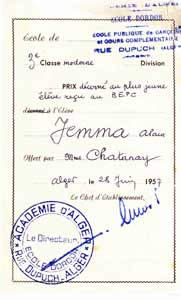 ACADEMIE D'ALGER
ECOLE DORDOR
École de
ECOLE PUBLIQUE de GARÇONS
et COURS COMPLEMENTAIRE
RUE DUPUCH - ALGER
2e Classe moderne Division
PRIX décerné au plus jeune
élève reçu au BEPC
décerné à l'Élève
Jemma Alain
Offert par Mme Chatanay
Alger le 28 Juin 1957
Le Chef d'Établissement,
ACADEMIE D'ALGER
Le Directeur,
ECOLE DORDOR
RUE DUPUCH - ALGER